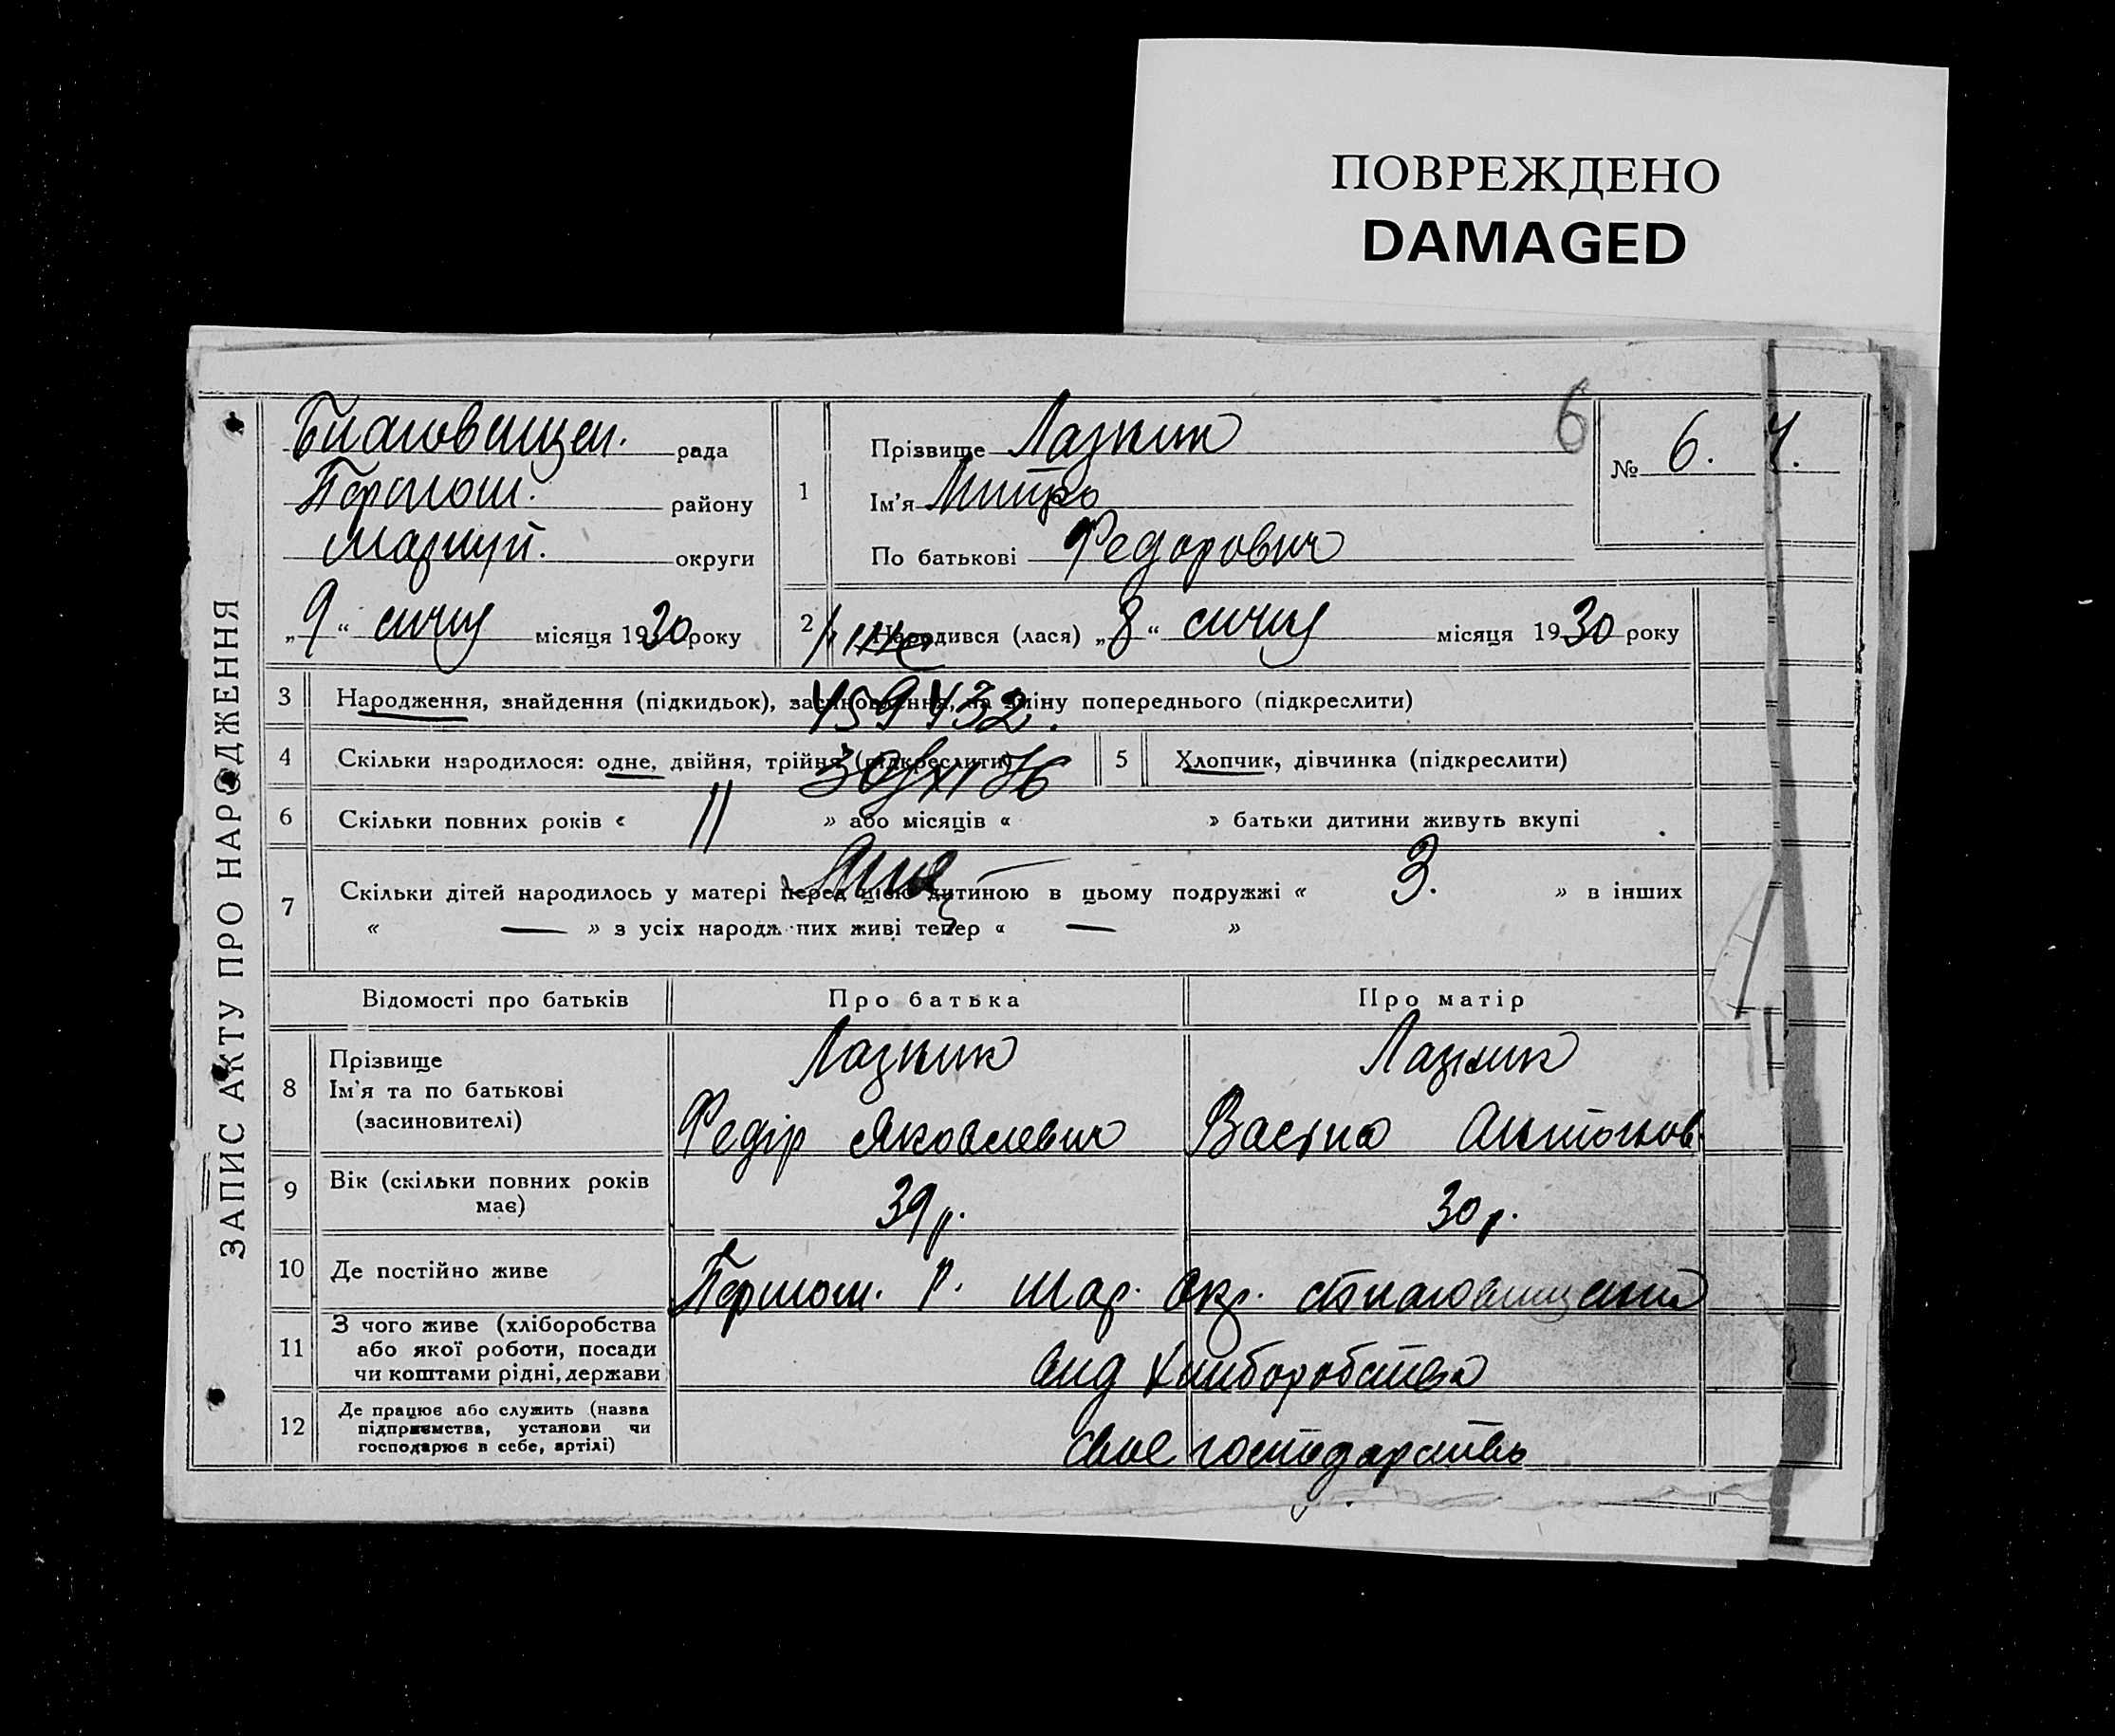 ПОВРЕЖДЕНО
DAMAGED
ЗАПИС АКТУ ПРО НАРОДЖЕННЯ
рада
району
округи
„9“ сичня місяця 1930 року
1
Прізвище Лазник
Ім'я Митро
По батькові Федорович
6
№ 6. 4.
2 Народився (лася) „8“ сичня місяця 1930 року
3 Народження, знайдення (підкидьок), засиновлення, на зміну попереднього (підкреслити)
459432.
4 Скільки народилося: одне, двійня, трійня (підкреслити)
5 Хлопчик, дівчинка (підкреслити)
30/XI 76
6 Скільки повних років « 11 » або місяців « » батьки дитини живуть вкупі
7 Скільки дітей народилось у матері перед цією дитиною в цьому подружжі « 3. » в інших
« — » з усіх народж них живі тепер « — »
Відомості про батьків Про батька Про матір
8 Прізвище
Ім'я та по батькові
(засиновителі)
Лазник Лазник
Федір Яковлевич Антонов
9 Вік (скільки повних років
має)
39 р. 30 р.
10 Де постійно живе
р. Мар. Окр.
11 З чого живе (хліборобства
або якої роботи, посади
чи коштами рідні, держави
вид хлиборобства
12 Де працює або служить (назва
підприємства, установи чи
господарює в себе, артілі)
свое господарство